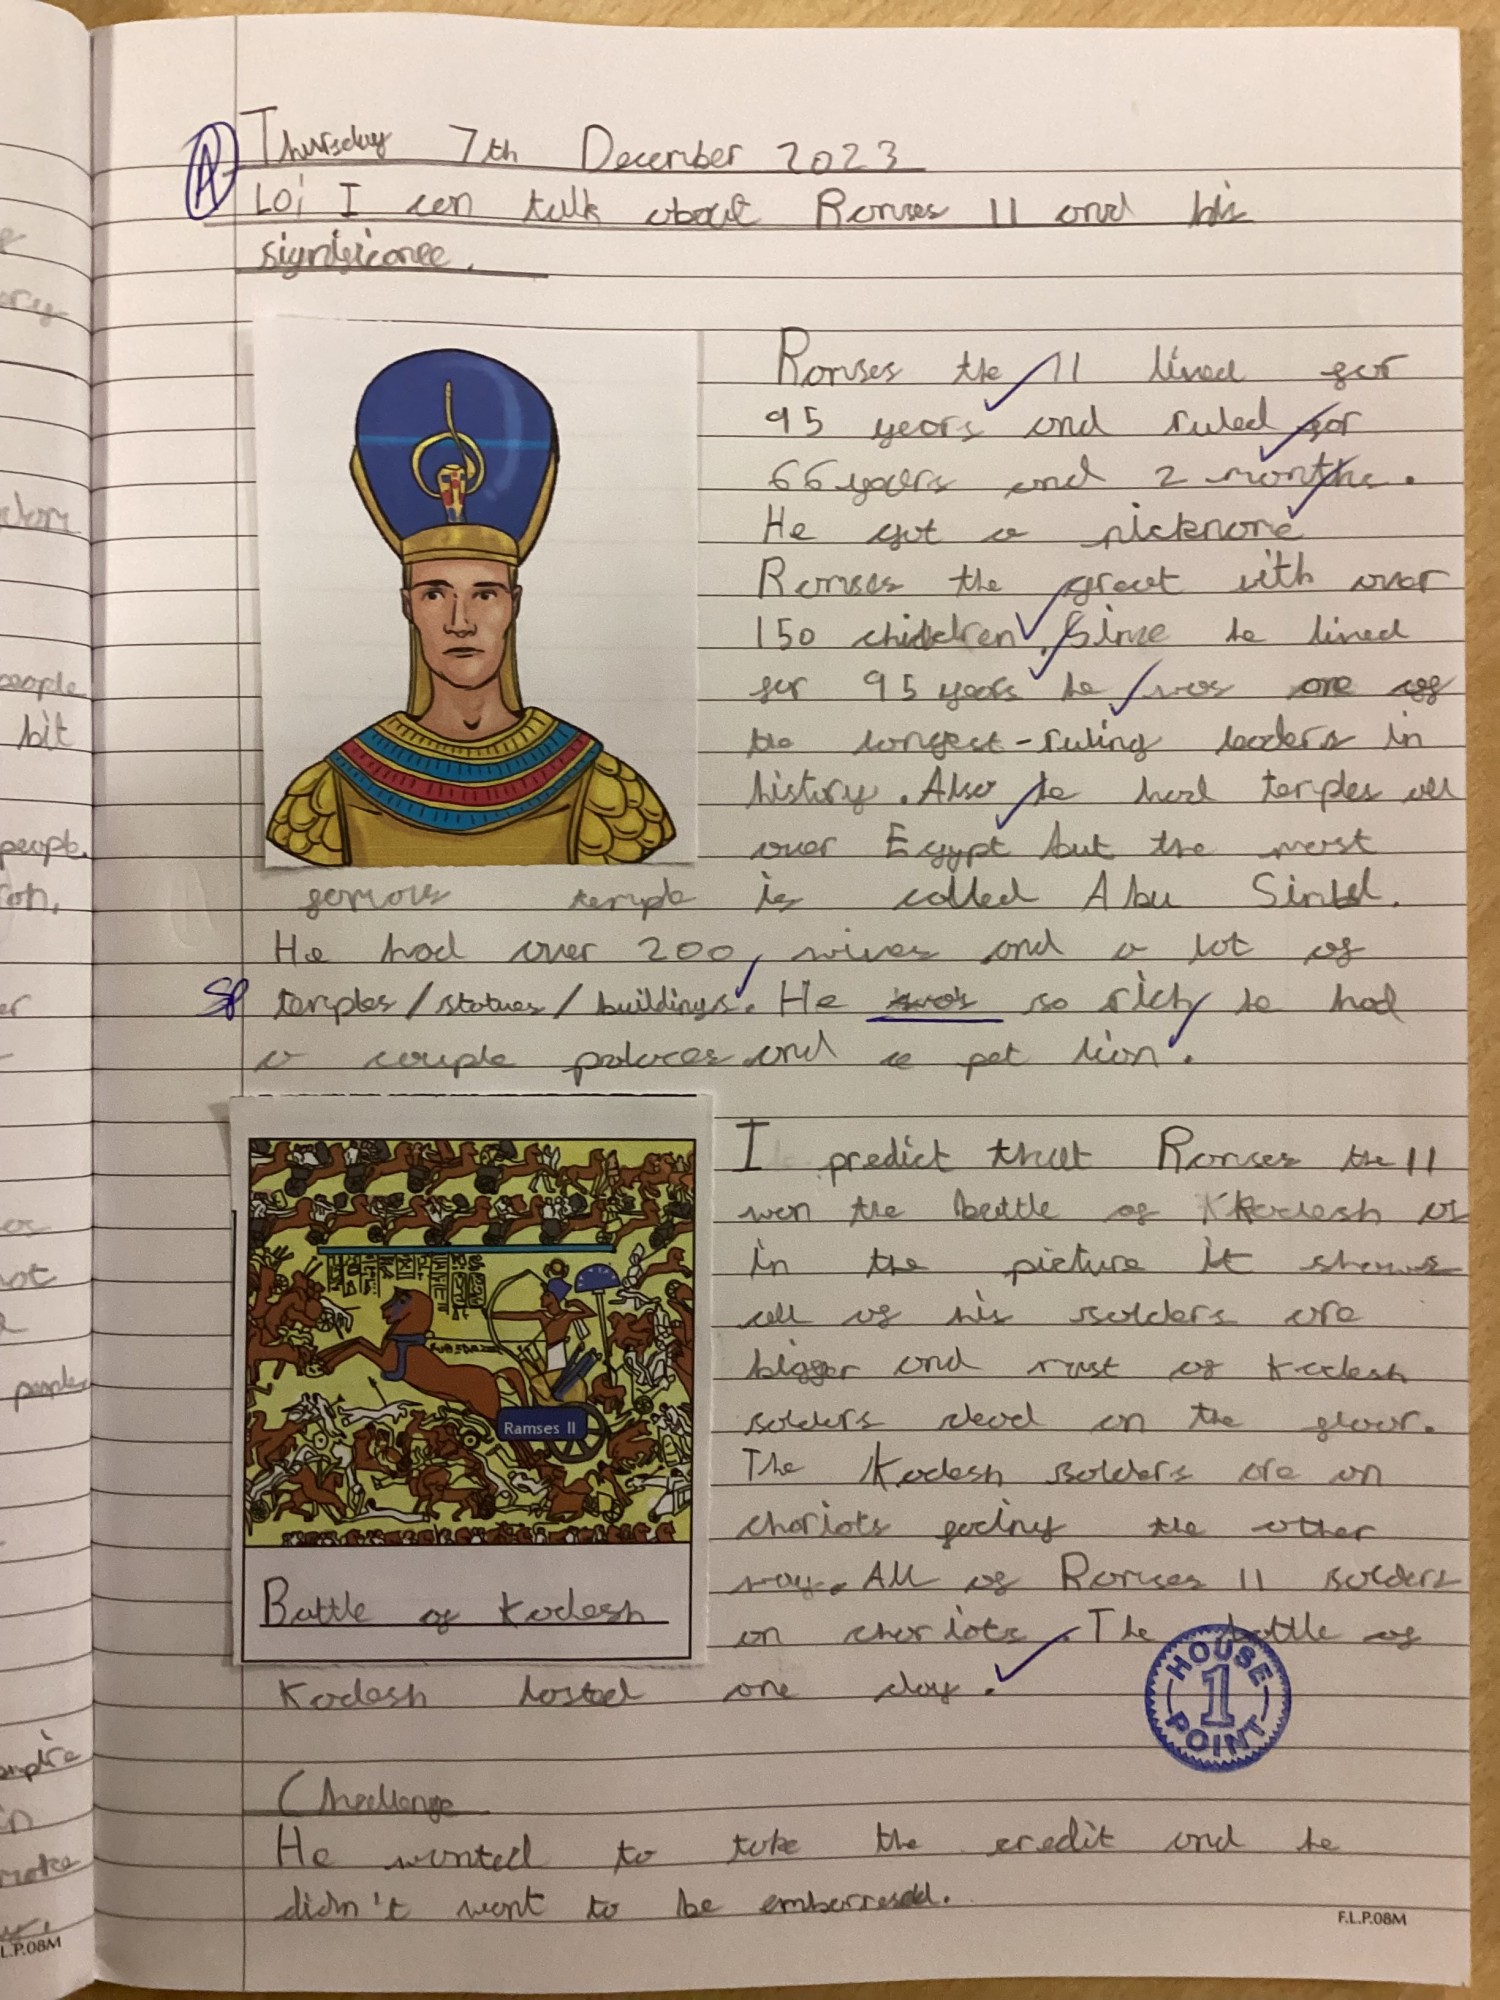 A
Thursday 7th December 2023
LO; I can talk about Ramses II and his
significance.
Ramses the II lived for
95 years and ruled for
66 years and 2 months.
He got a nickname
Ramses the great with over
150 children. Since he lived
for 95 years he was one of
the longest-ruling leaders in
history. Also he had temples all
over Egypt but the most
famous temple is called Abu Simbel.
He had over 200, wives and a lot of
SP temples/statues/buildings. He was so rich he had
a couple palaces and a pet lion.
I predict that Ramses the II
won the battle of Kadesh as
in the picture it shows
all of his solders are
bigger and most of Kadesh
solders dead on the floor.
The Kadesh solders are on
chariots going the other
way. All of Ramses II solders
on chariots. The battle of
Kadesh lasted one day.
Ramses II
Battle of Kadesh
HOUSE
1
POINT
Challenge
He wanted to take the credit and he
didn't want to be embarresed.
F.L.P.08M
ory
people
bit
people
ron.
er
not
people
empire
in
make
L.P.08M